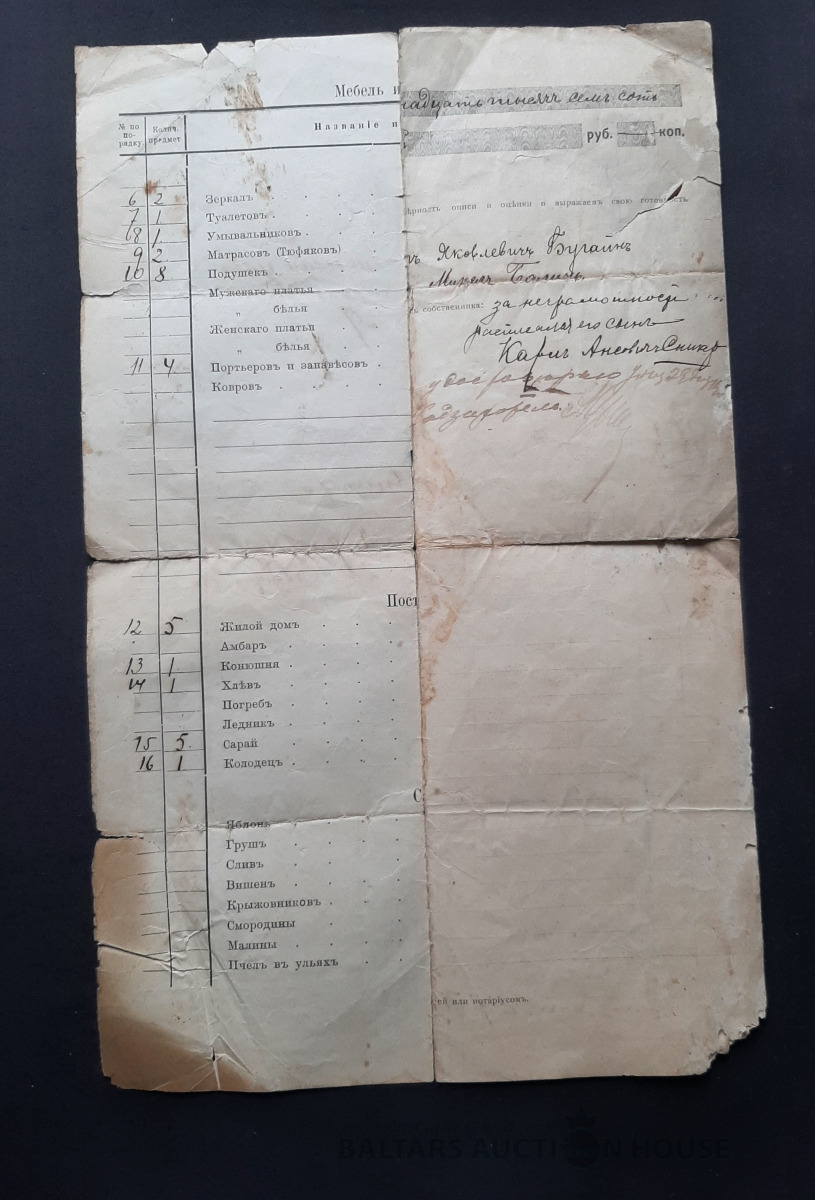 Мебель и
№ по по-рядку
Колич. предмет
Названіе и
6 2 Зеркалъ
7 1 Туалетовъ
8 1 Умывальниковъ
9 2 Матрасовъ (Тюфяковъ)
10 8 Подушекъ
Мужскаго платья
„ бѣлья
Женскаго платья
„ бѣлья
11 4 Портьеровъ и занавѣсовъ
Ковровъ
Пост
12 5 Жилой домъ
Амбаръ
13 1 Конюшня
14 1 Хлѣвъ
Погребъ
Ледникъ
15 5 Сарай
16 1 Колодецъ
С
Яблонь
Грушъ
Сливъ
Вишенъ
Крыжовниковъ
Смородины
Малины
Пчелъ въ ульяхъ
надцать тысячъ семь сотъ
руб. — коп.
ѣрность описи и оцѣнки и выражаемъ свою готовность
Яковлевичъ Бугайнъ
собственника: за неграмотностью
расписался его сынъ
Карлъ Ансовичъ
ей или нотаріусомъ.
BALTARS AUCTION HOUSE